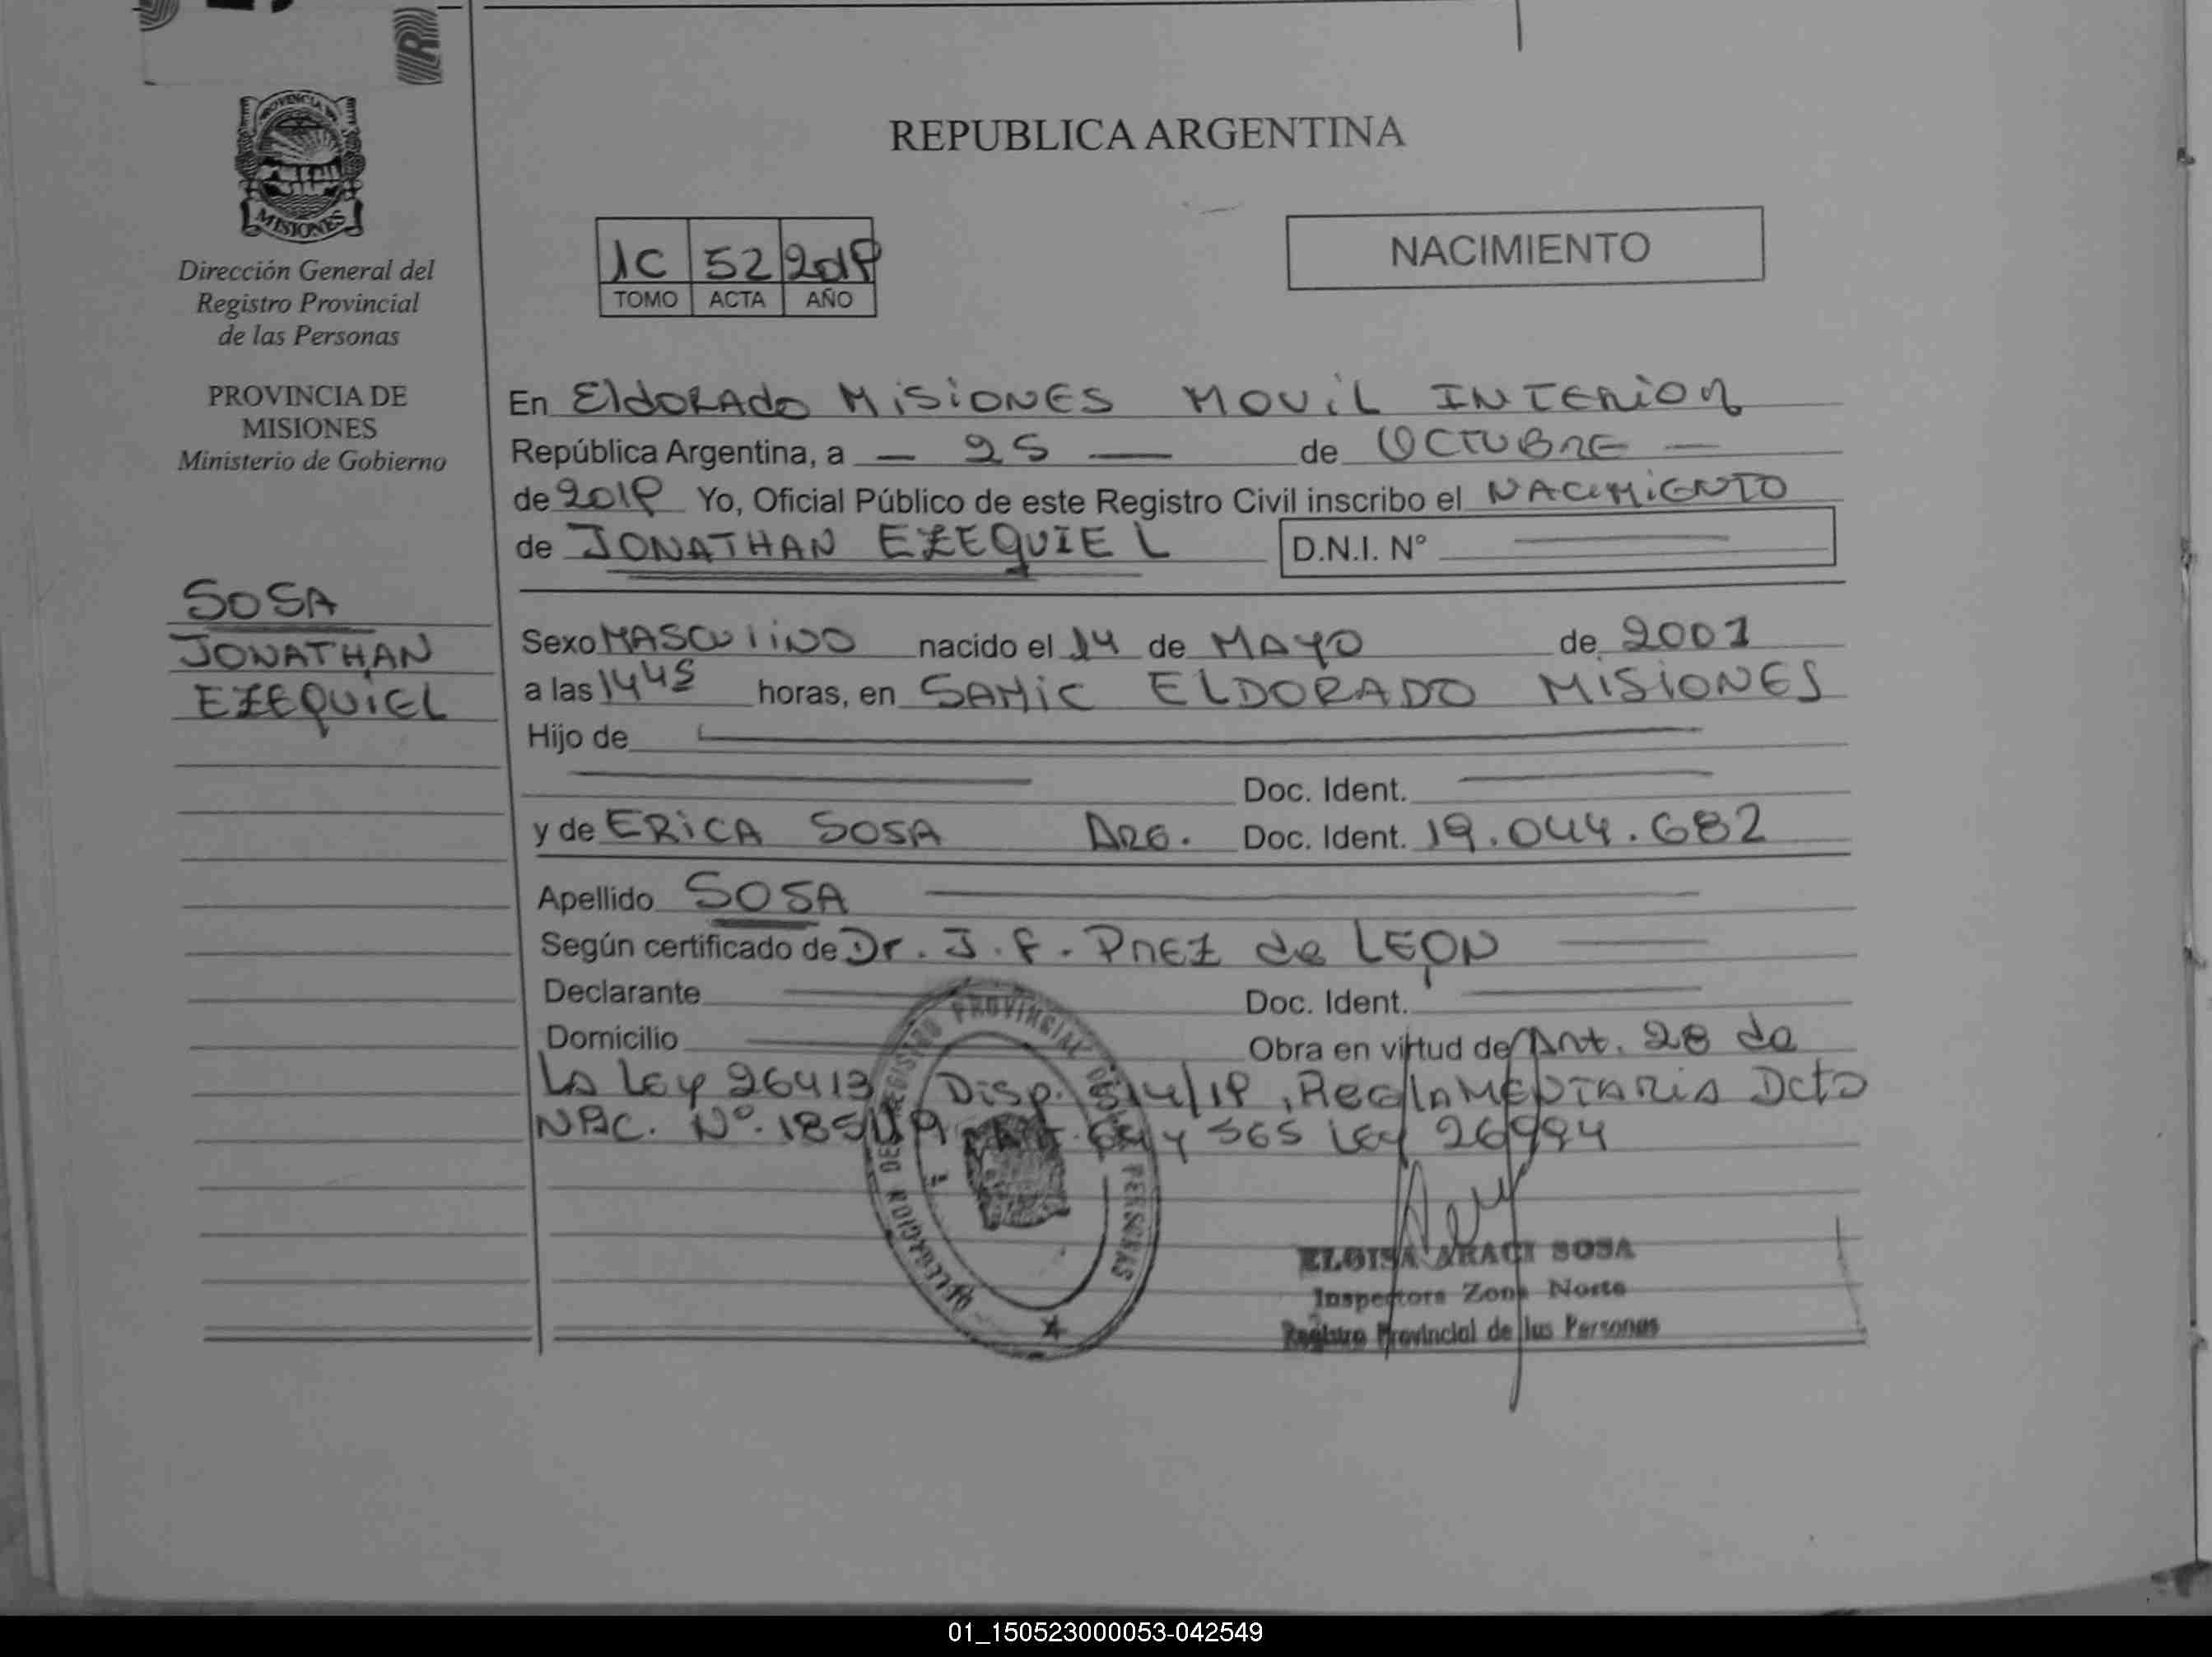 REPUBLICA ARGENTINA
PROVINCIA DE
MISIONES
Dirección General del
Registro Provincial
de las Personas
PROVINCIA DE
MISIONES
Ministerio de Gobierno
SOSA
JONATHAN
EZEQUIEL
1C 52 2018
TOMO ACTA AÑO
NACIMIENTO
En ElDORADO MISIONES MOVIL INTERIOR
República Argentina, a — 25 — de OCTUBRE —
de 2018 Yo, Oficial Público de este Registro Civil inscribo el NACIMIENTO
de JONATHAN EZEQUIEL D.N.I. N°
Sexo MASCULINO nacido el 14 de MAYO de 2001
a las 1445 horas, en SAMIC ELDORADO MISIONES
Hijo de
Doc. Ident.
y de ERICA SOSA ARG. Doc. Ident. 19.044.682
Apellido SOSA
Según certificado de Dr. J. F. PREZ de LEON
Declarante Doc. Ident.
Domicilio Obra en virtud de Art. 28 de
LA Ley 26413 Disp. 514/18, ReglAMENTARIA Dcto
NAC. N°. y 565 Ley 26994
DELEGACION DEL REGISTRO PROVINCIAL DE PERSONAS
ELOISA ARACI SOSA
Inspectora Zona Norte
Registro Provincial de las Personas
01_150523000053-042549